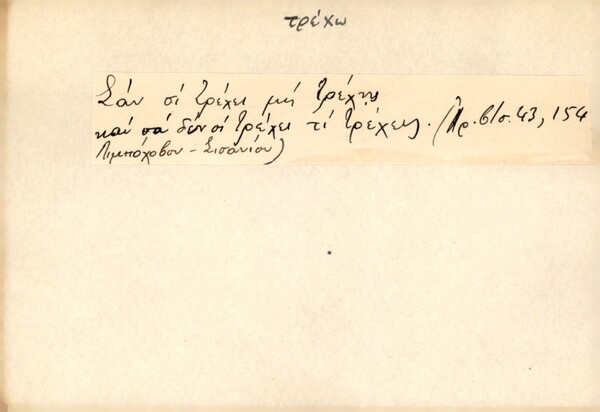 τρέχω
Σάν σέ τρέχει μή τρέχῃς
καί σά δέν σέ τρέχει τί τρέχεις. (Πρ. β/σ. 43, 154
Λιμπόχοβον - Σισάνιον)